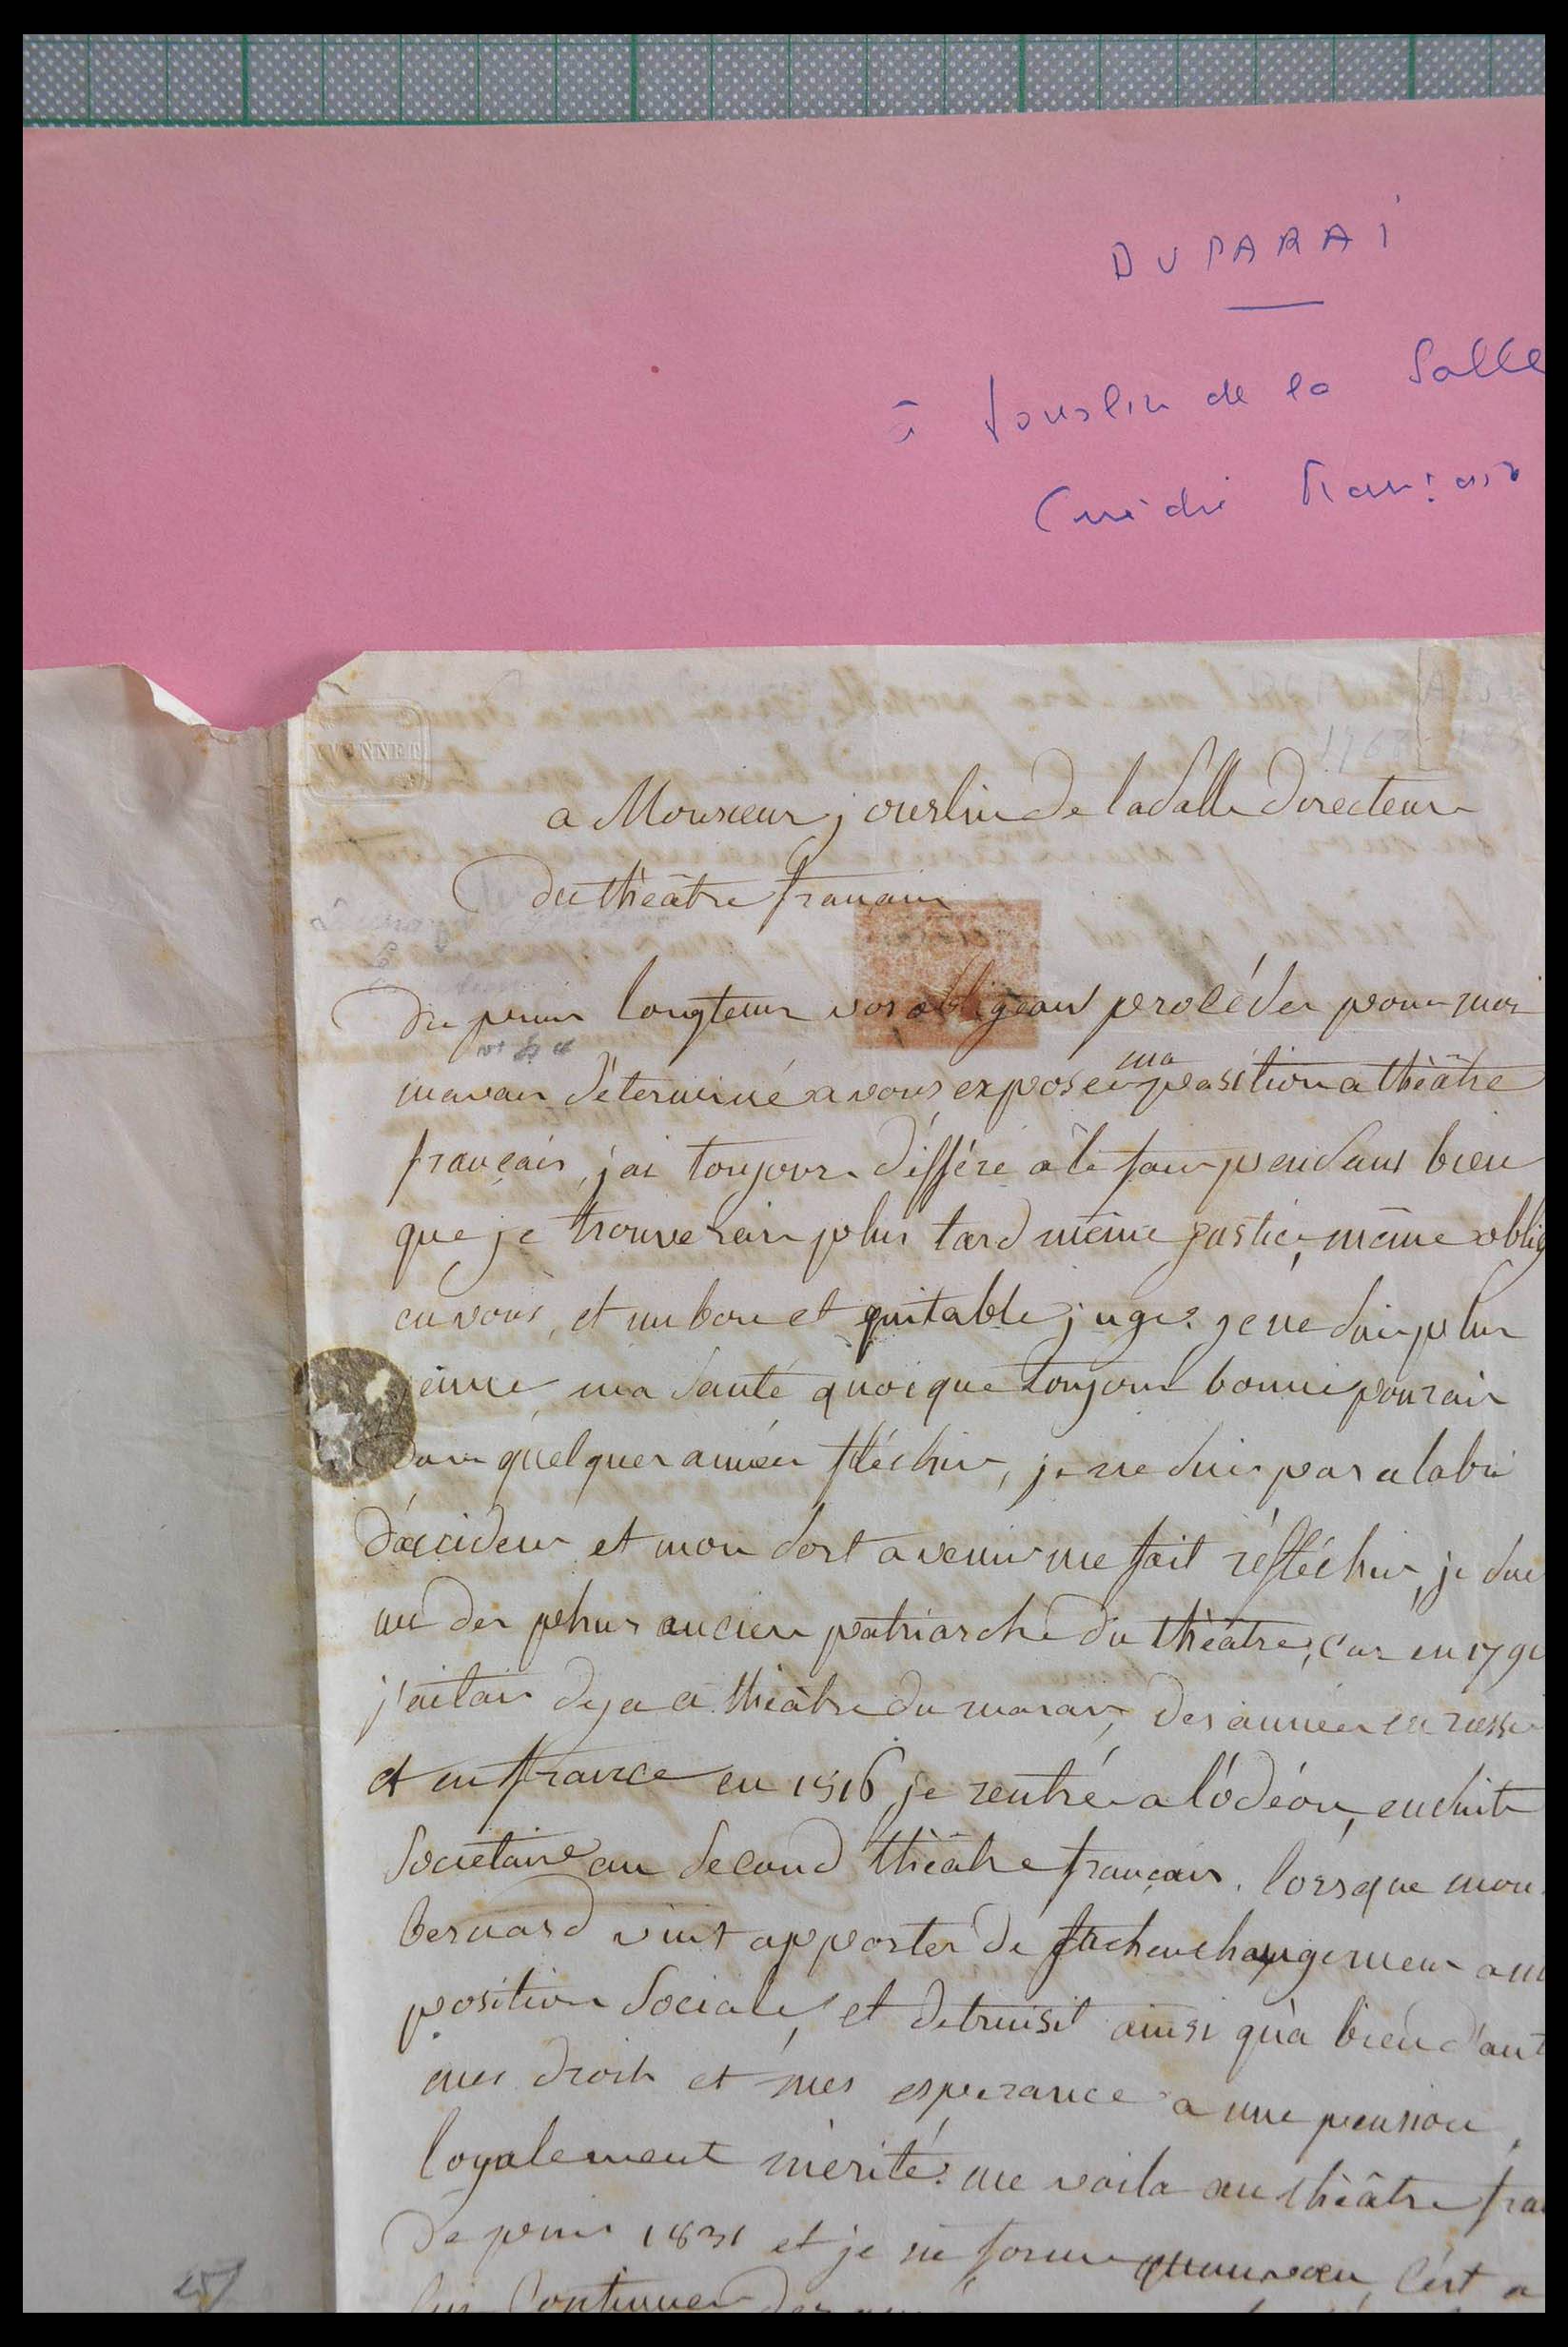 DUPARAI
à Jouslin de la Salle
Comédie Française
a Monsieur jouslin de la Salle directeur
du théâtre francais
de puis longtems vos obligeans procédés pour moi
mavais déterminé a vous exposer ma position a théâtre
français, j'ai toujours différé à le faire pensant bien
que je trouverais plus tard même justice, même oblig
en vous, et un bon et quitable juge. je ne suis plus
jeune, ma santé quoique toujours bonne pourais
dans quelques année fléchir, je ne suis pas a labri
d'accidens et mon sort avenir me fait réfléchir, je suis
un des plus ancien patriarche du théâtre, car en 179
j'aitais deja a théâtre du marais, des année en russie
et en france en 1816 je rentré a l'odéon, ensuite
Societaire au Second théâtre français. lorsque mon
bernard vint apporter de facheux changemens a m
position Sociale, et detruisit ainsi qu'a bien d'aut
mes droits et mes esperance a une pension
loyalement mérité. me voila au théâtre fra
depuis 1831 et je ne forme c'est a
continuer